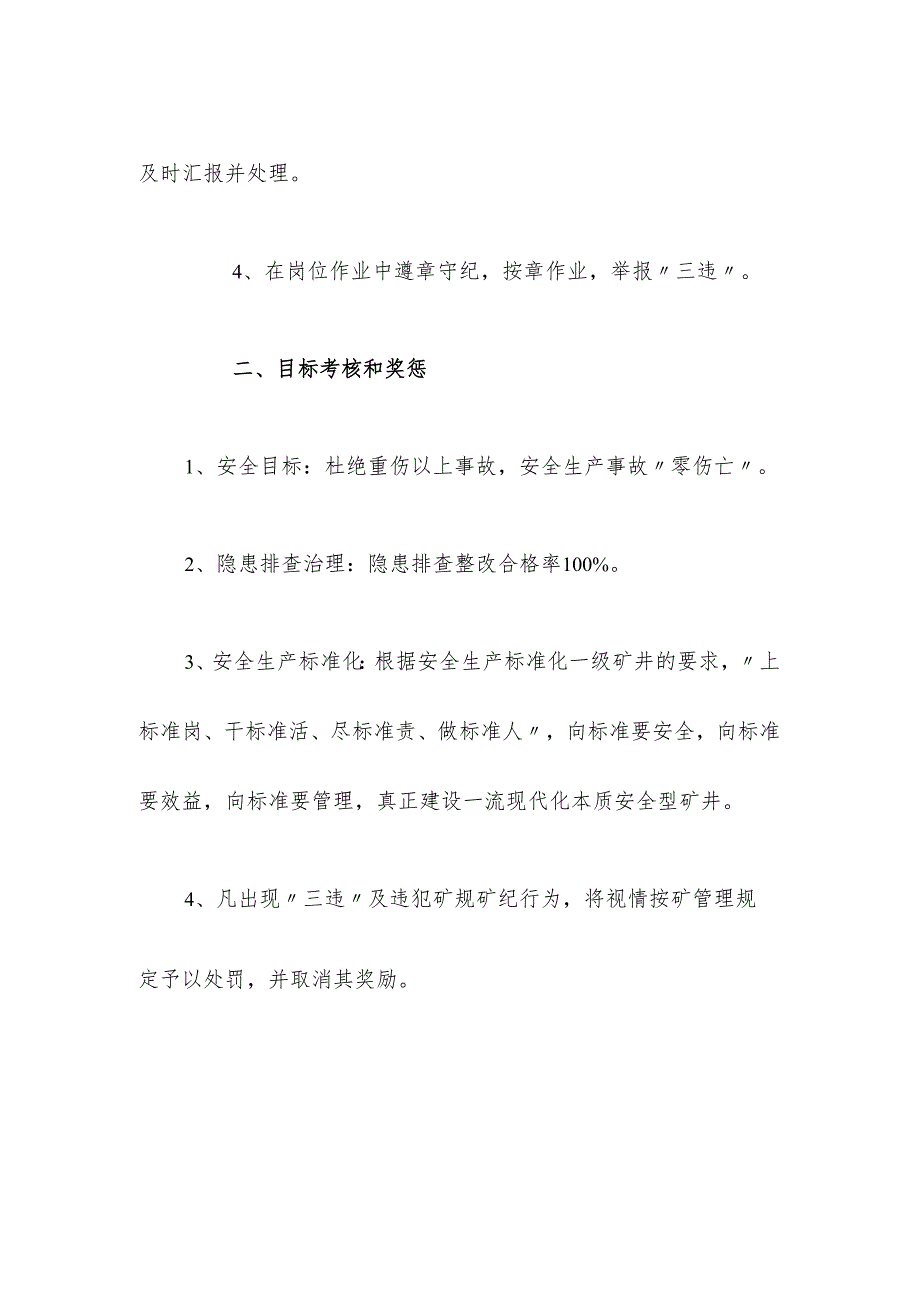 及时汇报并处理。
4、在岗位作业中遵章守纪，按章作业，举报〃三违〃。
二、目标考核和奖惩
1、安全目标：杜绝重伤以上事故，安全生产事故〃零伤亡〃。
2、隐患排查治理：隐患排查整改合格率100%。
3、安全生产标准化：根据安全生产标准化一级矿井的要求，〃上
标准岗、干标准活、尽标准责、做标准人〃，向标准要安全，向标准
要效益，向标准要管理，真正建设一流现代化本质安全型矿井。
4、凡出现〃三违〃及违犯矿规矿纪行为，将视情按矿管理规
定予以处罚，并取消其奖励。